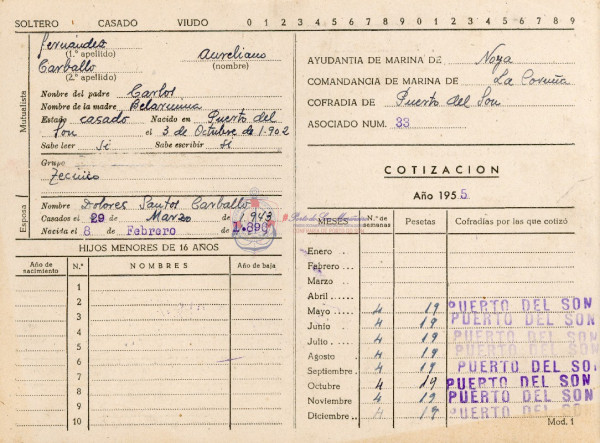 SOLTERO CASADO VIUDO 0 1 2 3 4 5 6 7 8 9 0 1 2 3 4 5 6 7 8 9
Fernández
(1.er apellido)
Aureliano
(nombre)
Carballo
(2.º apellido)
Mutualista
Nombre del padre Carlos
Nombre de la madre Belarmina
Estado casado Nacido en Puerto del
Son el 3 de Octubre de 1.902
Sabe leer Si Sabe escribir Si
Grupo
Esposa
Nombre Dolores Santos Carballo
Casados el 29 de Marzo de 1.943
Nacida el 8 de Febrero de 1.890
HIJOS MENORES DE 16 AÑOS
Año de nacimiento N.º NOMBRES Año de baja
1
2
3
4
5
6
7
8
9
10
AYUDANTIA DE MARINA DE Noya
COMANDANCIA DE MARINA DE La Coruña
COFRADIA DE Puerto del Son
ASOCIADO NUM. 33
COTIZACION
Año 1955
MESES N.º de semanas Pesetas Cofradías por las que cotizó
Enero
Febrero
Marzo
Abril
Mayo 4 19 PUERTO DEL SON
Junio 4 19 PUERTO DEL SON
Julio 4 19 PUERTO DEL SON
Agosto 4 19 PUERTO DEL SON
Septiembre 4 19 PUERTO DEL SON
Octubre 4 19 PUERTO DEL SON
Noviembre 4 19 PUERTO DEL SON
Diciembre 4 19 PUERTO DEL SON
Mod. 1